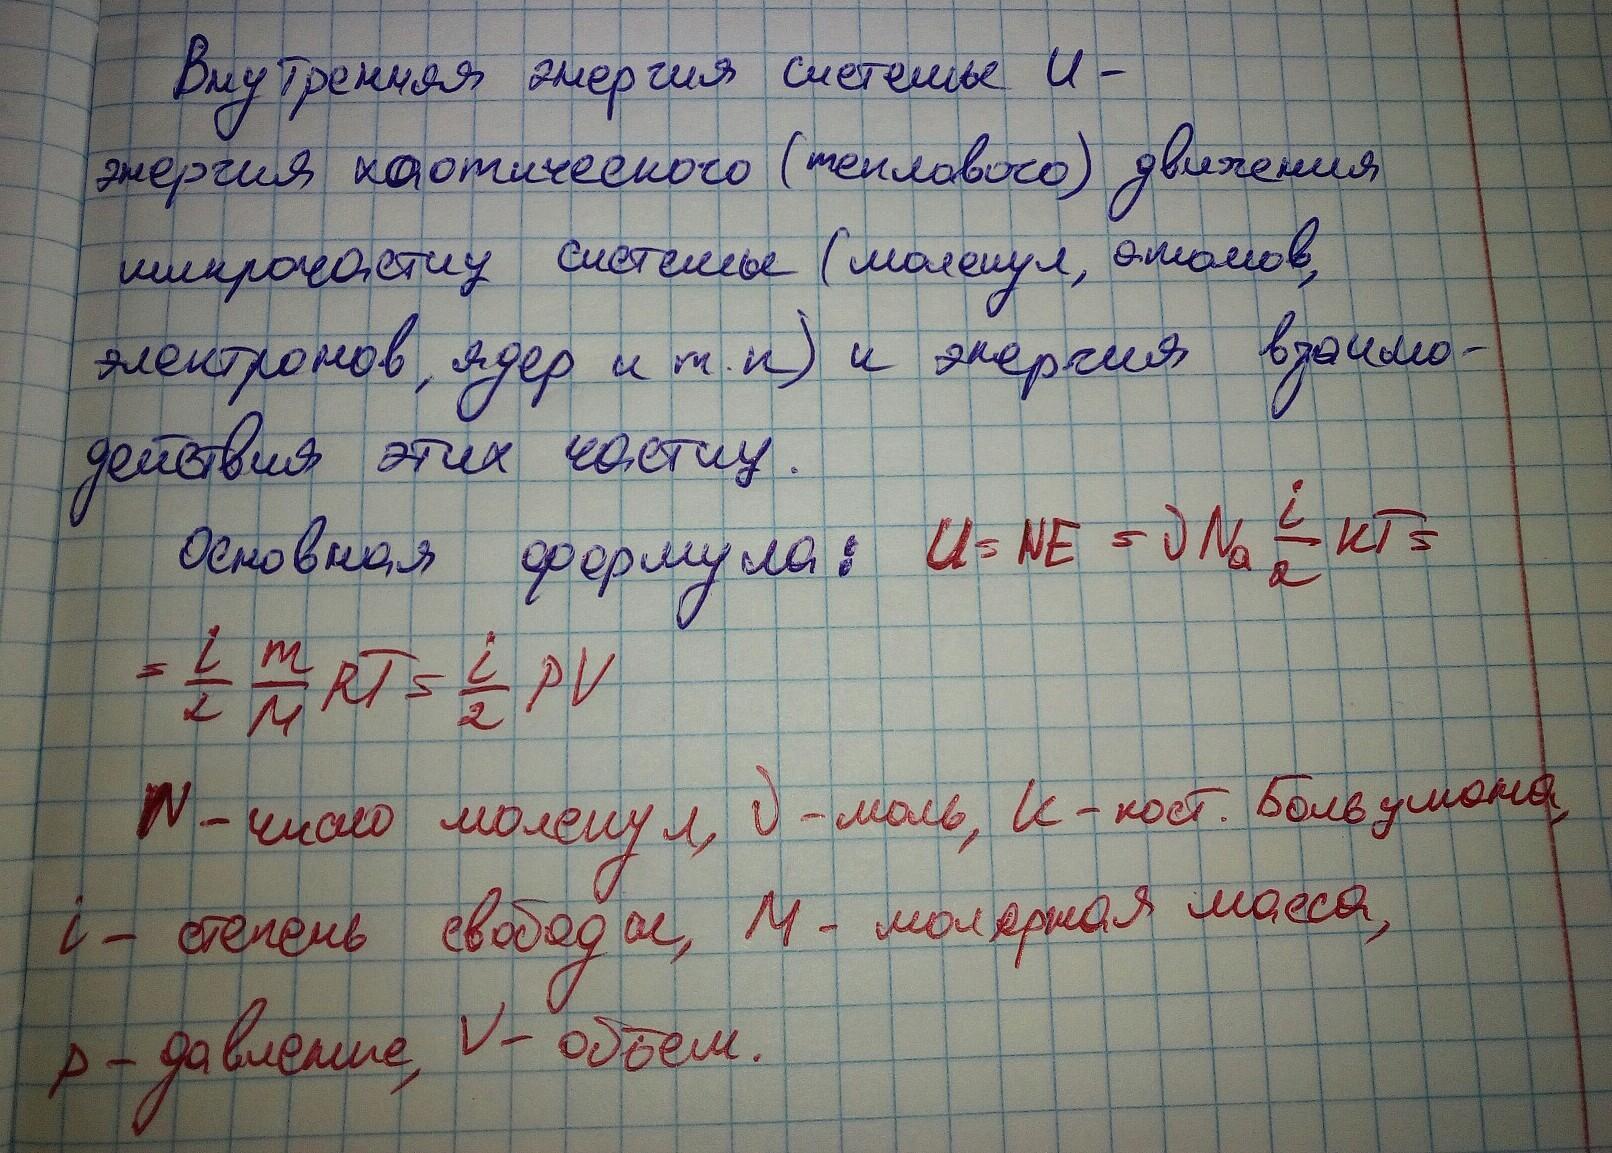 Внутренняя энергия системы U -
энергия хаотического (теплового) движения
микрочастиц системы (молекул, атомов,
электронов, ядер и т.п) и энергия взаимо-
действия этих частиц.
Основная формула: U = NE = νNa i/2 KT =
= i/2 m/M RT = i/2 PV
N - число молекул, ν - моль, К - пост. Больцмана,
i - степень свободы, M - молярная масса,
p - давление, V - объем.